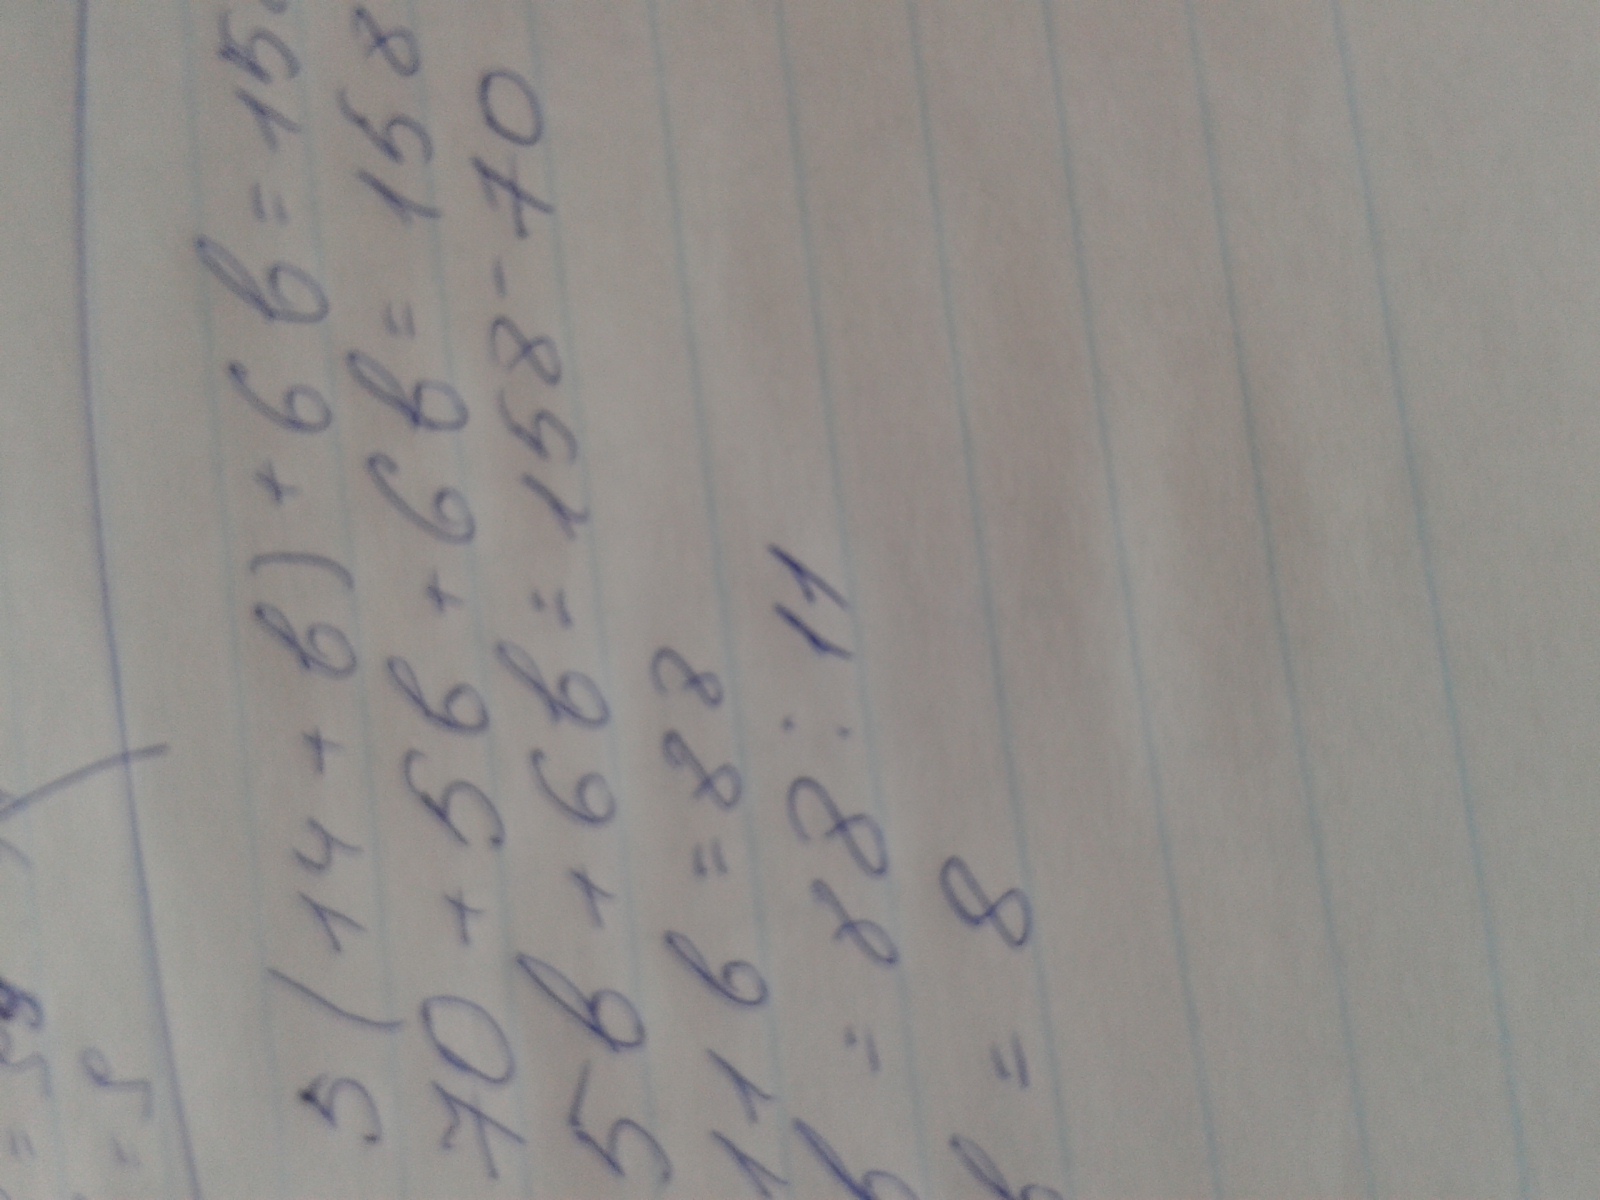 5(14+b)+6b=15
70+5b+6b=158
5b+6b=158-70
11b=88
b=88:11
b=8